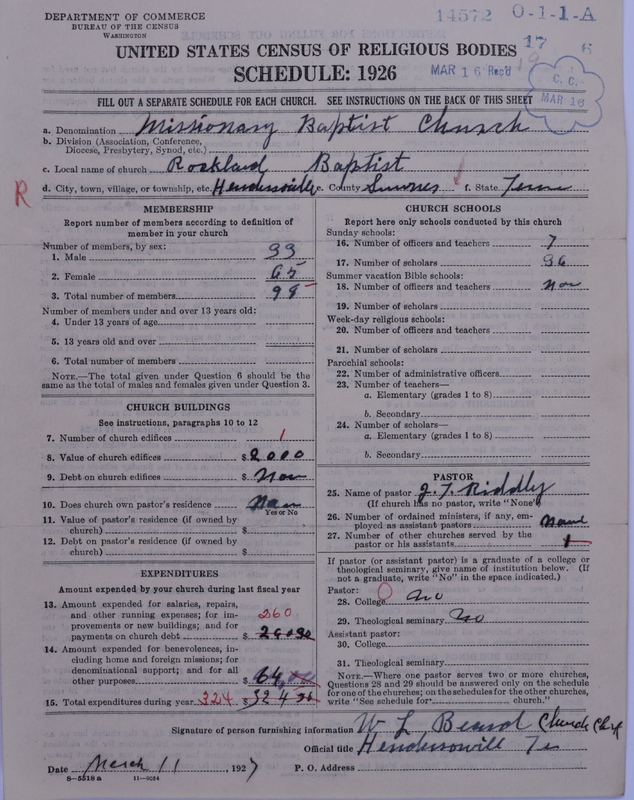 DEPARTMENT OF COMMERCE
BUREAU OF THE CENSUS
WASHINGTON
14572 0-1-1-A
17 6
UNITED STATES CENSUS OF RELIGIOUS BODIES
SCHEDULE: 1926
MAR 16 Rec'd
C. C.
MAR 16
FILL OUT A SEPARATE SCHEDULE FOR EACH CHURCH. SEE INSTRUCTIONS ON THE BACK OF THIS SHEET
a. Denomination Missionary Baptist Church
b. Division (Association, Conference, Diocese, Presbytery, Synod, etc.)
c. Local name of church Rockland Baptist
R
d. City, town, village, or township, etc. Hendersonville e. County Sumner f. State Tenn
MEMBERSHIP
Report number of members according to definition of
member in your church
Number of members, by sex:
1. Male 33
2. Female 65
3. Total number of members 98
Number of members under and over 13 years old:
4. Under 13 years of age
5. 13 years old and over
6. Total number of members
NOTE.—The total given under Question 6 should be the
same as the total of males and females given under Question 3.
CHURCH BUILDINGS
See instructions, paragraphs 10 to 12
7. Number of church edifices 1
8. Value of church edifices $2000
9. Debt on church edifices $ Non
10. Does church own pastor's residence
Yes or No
11. Value of pastor's residence (if owned by
church) $
12. Debt on pastor's residence (if owned by
church) $
EXPENDITURES
Amount expended by your church during last fiscal year
13. Amount expended for salaries, repairs,
and other running expenses; for im- 260
provements or new buildings; and for
payments on church debt $
14. Amount expended for benevolences, in-
cluding home and foreign missions; for
denominational support; and for all
other purposes $ 64
15. Total expenditures during year 324 $ 324
CHURCH SCHOOLS
Report here only schools conducted by this church
Sunday schools:
16. Number of officers and teachers 7
17. Number of scholars 36
Summer vacation Bible schools:
18. Number of officers and teachers Non
19. Number of scholars
Week-day religious schools:
20. Number of officers and teachers
21. Number of scholars
Parochial schools:
22. Number of administrative officers
23. Number of teachers—
a. Elementary (grades 1 to 8)
b. Secondary
24. Number of scholars—
a. Elementary (grades 1 to 8)
b. Secondary
PASTOR
25. Name of pastor J. T. Riddly
(If church has no pastor, write "None")
26. Number of ordained ministers, if any, em-
ployed as assistant pastors
27. Number of other churches served by the
pastor or his assistants 1
If pastor (or assistant pastor) is a graduate of a college or
theological seminary, give name of institution below. (If
not a graduate, write "No" in the space indicated.)
Pastor:
28. College no
29. Theological seminary no
Assistant pastor:
30. College
31. Theological seminary
NOTE.—Where one pastor serves two or more churches,
Questions 28 and 29 should be answered only on the schedule
for one of the churches; on the schedules for the other churches,
write "See schedule for church."
Signature of person furnishing information W L Beard Church Clerk
Official title Hendersonvill Te
Date March 11, 1927 P. O. Address
8—5518a 11—9024